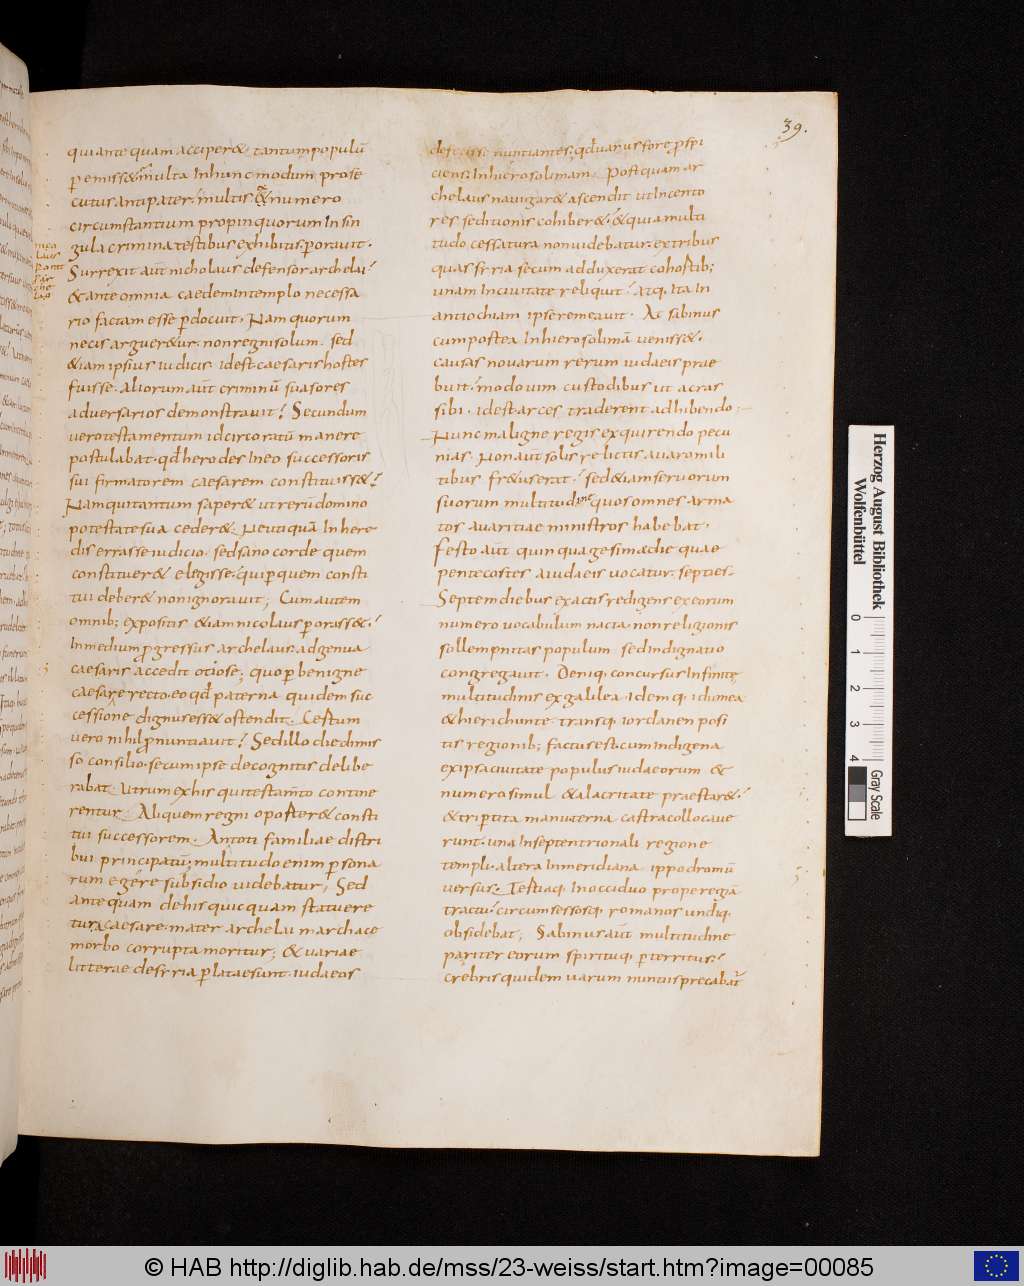 39.
quiante quam acciper& tantum populū
p emiss& multa Inhunc modum prose
cutus antipater. multis & numero
circumstantium propinquorum In sin
gula crimina testibus exhibitis porauit.
Surrexit aut nicholaus defensor archelai
& ante omnia caedem Intemplo necessa
rio factam esse pdocuit. Nam quorum
necis arguer&ur. non regni solum. sed
&iam ipsius iudicis. idest caesaris hostes
fuisse. aliorum aut criminū suasores
aduersarios demonstrauit. Secundum
uero testamentum idcirco ratū manere
postulabat. qd herodes Ineo successoris
sui firmatorem caesarem constituiss&
Namqui tantum saper& ut rerū domino
potestate sua ceder&. Neutiquā In here
dis errasse iudicio. sed sano corde quem
constituer& elegisse. quip quem consti
tui deber& non ignorauit; Cum autem
omnib; expositis &iam nicolaus porass&.
Inmedium pgressus archelaus. adgenua
caesaris accedit otiose; quo pbenigne
caesare recto eo qd paterna quidem suc
cessione dignus ess& ostendit. Certum
uero nihil pnuntiauit. Sed illo die dimis
so consilio. secum ipse de cognitis delibe
rabat. Utrum exhis qui testamto contine
rentur. Aliquem regni oporter& consti
tui successorem. An toti familiae distri
bui principatū; multitudo enim psona
rum egere subsidio uidebatur; Sed
ante quam dehis quicquam statuere
tur a caesare. mater archelai marchace
morbo corrupta moritur; & uariae
litterae desrria plataesunt. iudaeos
nico
laus
pont
p ar
che
lao
defecisse nuntiantes; qd uarus fore pspi
ciens In hierosolimam. Postquam ar
chelaus nauigar& ascendit ut Incento
res seditionis cohiber&. & quia multi
tudo cessatura non uidebatur. ex tribus
quas sr ria secum adduxerat cohortib;
unam Inciuitate reliquit. atq. Ita In
antiochiam ipse remeauit. Ac sabinus
cum postea In hierosolimā ueniss&.
causas nouarum rerum iudaeis prae
buit. modo uim custodibus ut acras
sibi. idest arces traderent adhibendo;
Nunc maligne regis exquirendo pecu
nias. Non aut solis relictis auaro mili
tibus fr&userat. sed &iam seruorum
suorum multitudine quos omnes arma
tos auaritiae ministros habebat.
Festo aut quinquagesimae die quae
pentecostes aiudaeis uocatur. septies.
Septem diebus exactis redigens ex eorum
numero uocabulum nacta. non religionis
sollempnitas populum. sed indignatio
congregauit. Deniq. concursus Infinitę
multitudinis ex galilea. Idemq. idumea
& hierichunte. transq. iordanen posi
tis regionib; factus est. cum Indigena
ex ipsa ciuitate populus iudaeorum &
numero simul & alacritate praestar&.
& triptita manu terna castra collocaue
runt. una Inseptentrionali regione
templi. altera Inmeridiana ippodromū
uersus. Tertiaq. In occiduo prope regiā
tractu. circumsessosq. romanos undiq.
obsidebat; Sabinus aut multitudine
pariter eorum spirituq. pterritus.
crebris quidem uarum nuntiis precabat
Herzog August Bibliothek
Wolfenbüttel
0 1 2 3 4
Gray Scale
© HAB http://diglib.hab.de/mss/23-weiss/start.htm?image=00085